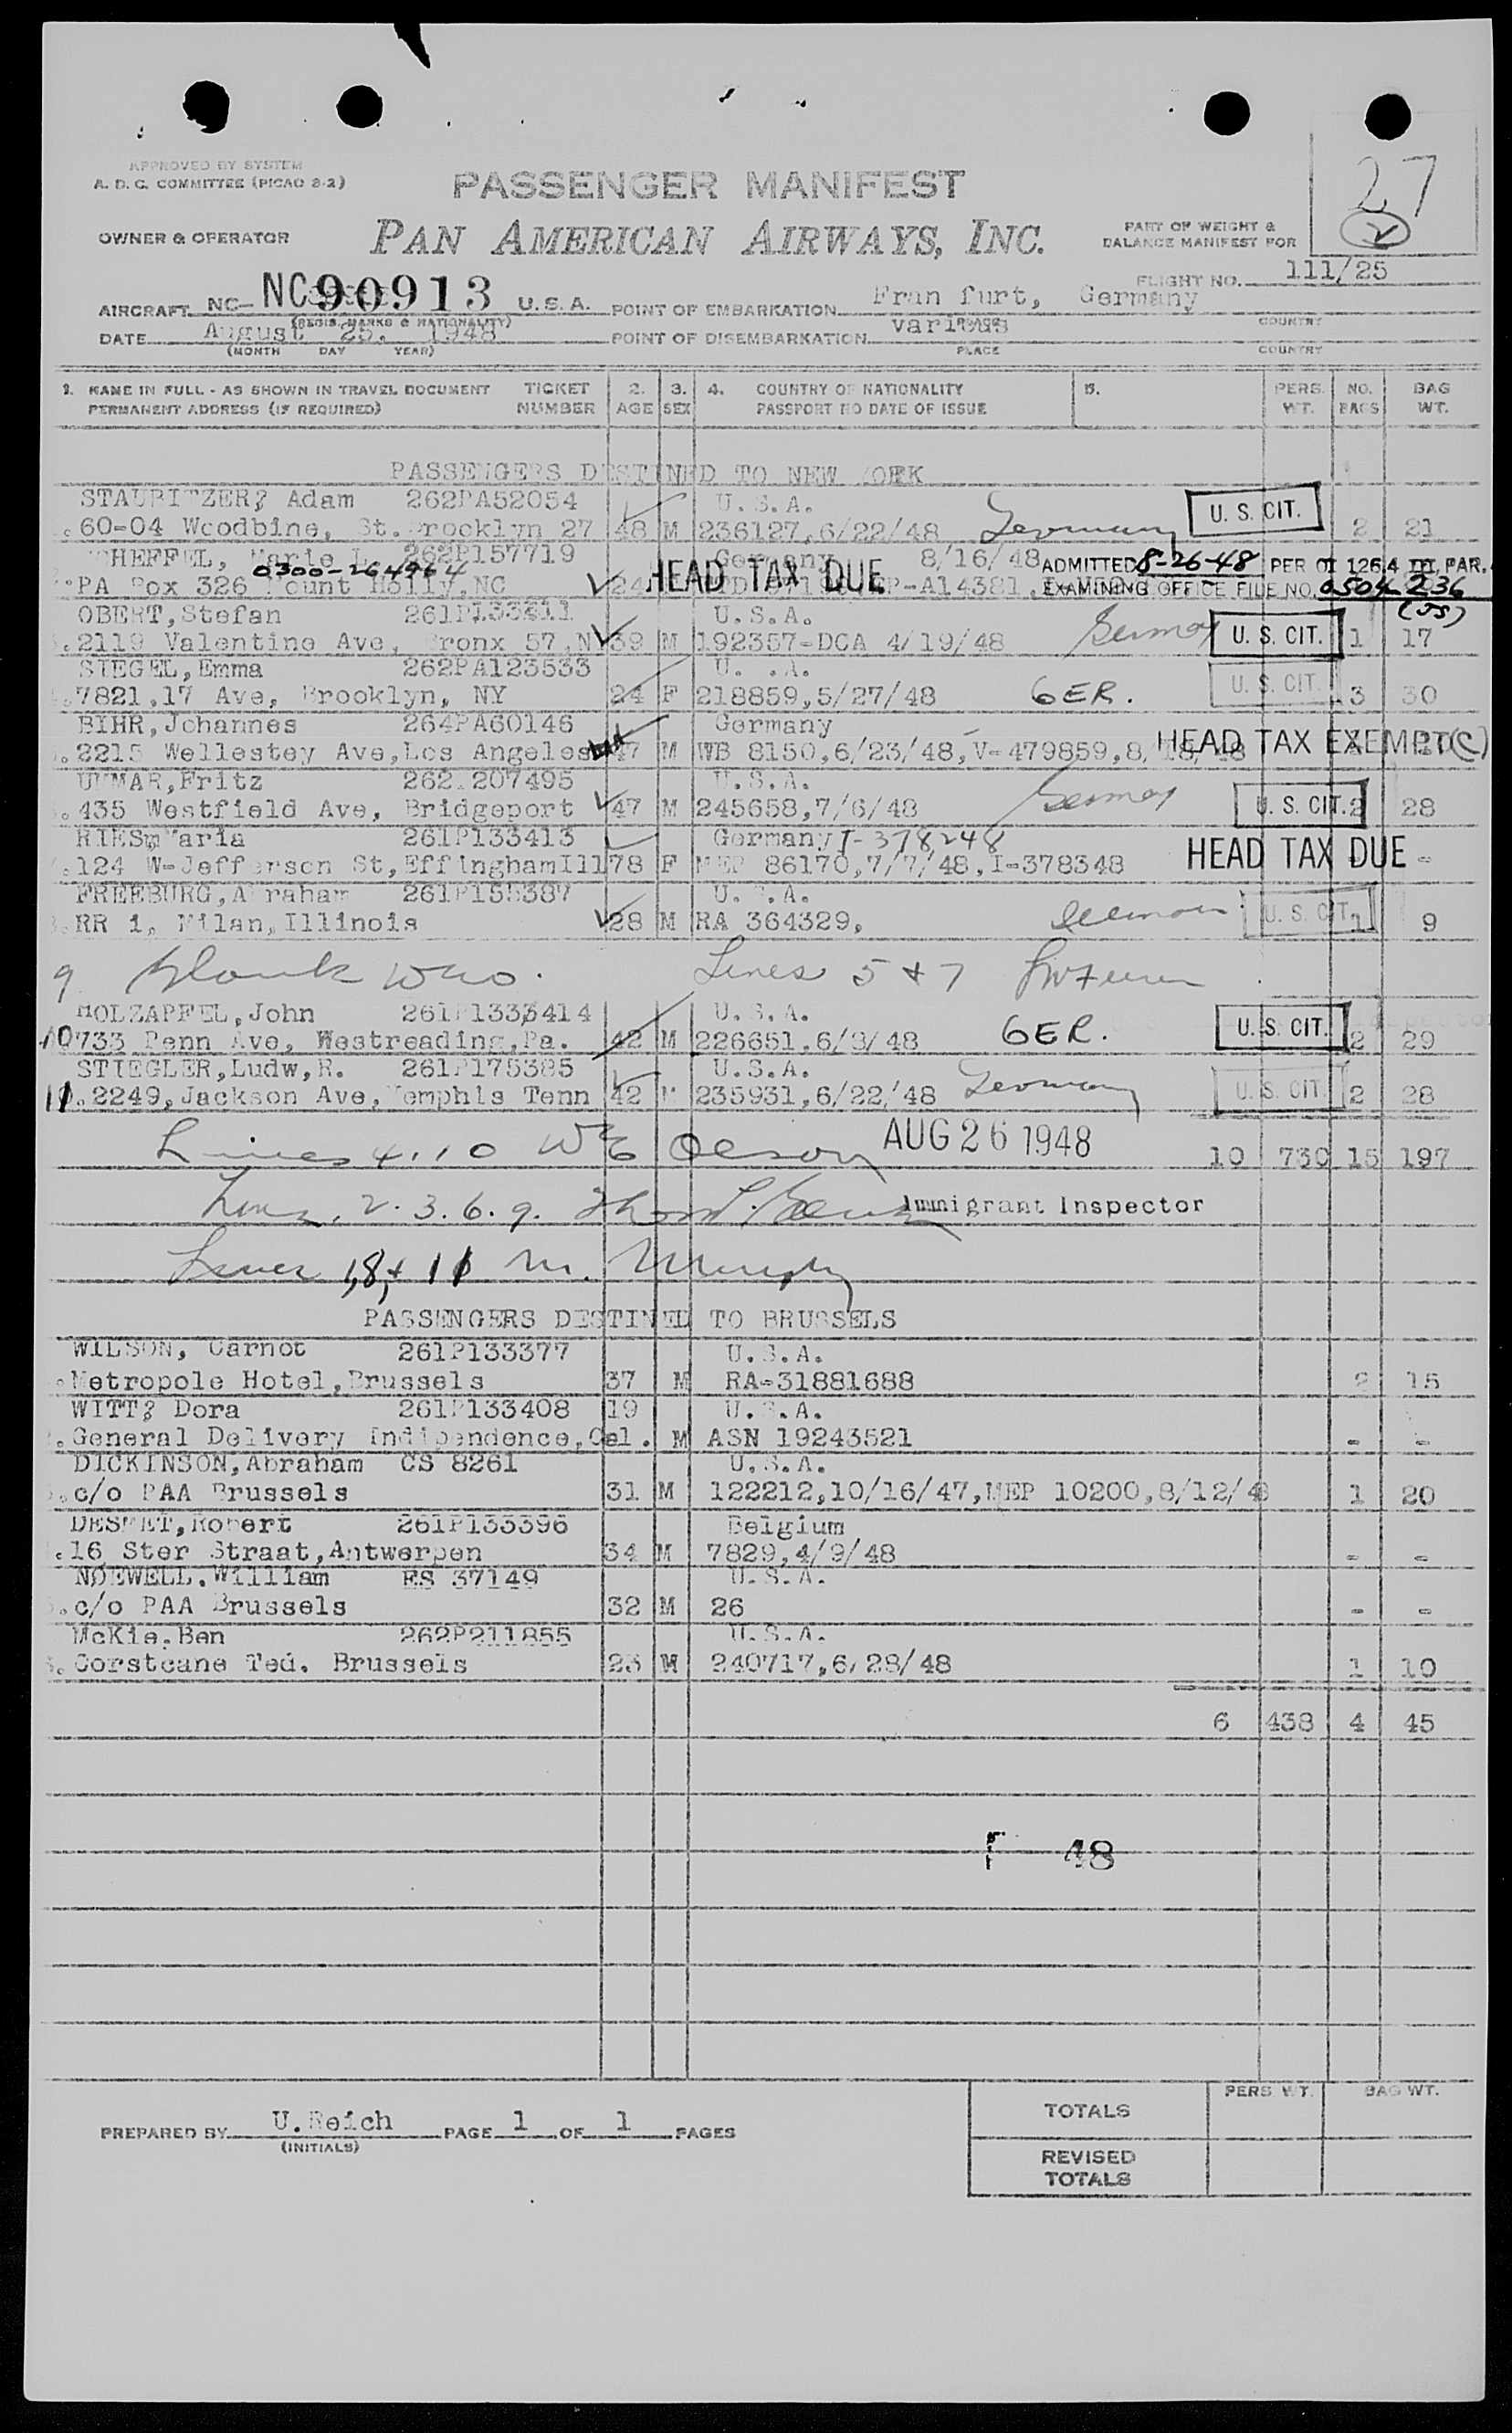 APPROVED BY SYSTEM
A. D. C. COMMITTEE (PICAO 2-2)
PASSENGER MANIFEST
27
OWNER & OPERATOR
PAN AMERICAN AIRWAYS, INC.
PART OF WEIGHT &
BALANCE MANIFEST FOR
FLIGHT NO. 111/25
AIRCRAFT NC- NC90913 U.S.A. POINT OF EMBARKATION Fran furt, Germany
(REGIS. MARKS & NATIONALITY) PLACE COUNTRY
DATE August 25, 1948 POINT OF DISEMBARKATION various
(MONTH DAY YEAR) PLACE COUNTRY
1. NAME IN FULL - AS SHOWN IN TRAVEL DOCUMENT TICKET 2. 3. 4. COUNTRY OF NATIONALITY 5. PERS. NO. BAG
PERMANENT ADDRESS (IF REQUIRED) NUMBER AGE SEX PASSPORT NO DATE OF ISSUE WT. BAGS WT.
PASSENGERS DESTINED TO NEW YORK
STAUBITZER, Adam 262PA52054 U.S.A.
60-04 Woodbine, St. Brooklyn 27 48 M 236127,6/22/48 Germany U. S. CIT. 2 21
Marie 262P157719 Germany 8/16/48 ADMITTED 8-26-48 PER OI 126.4 PAR.
0300-264964
PA Box 326 Mount Holly, NC 24 HEAD TAX DUE EXAMINING OFFICE FILE NO. 0504 236
(JS)
OBERT, Stefan U.S.A.
2119 Valentine Ave, Bronx 57, N 39 M 192357-DCA 4/19/48 U. S. CIT. 1 17
SIEGEL, Emma 262PA123533 U. .A.
7821,17 Ave, Brooklyn, NY 24 F 218859,5/27/48 GER. U. S. CIT. 3 30
BIHR, Johannes 264PA60146 Germany
2215 Wellestey Ave, Los Angeles 47 M WB 8150,6/23/48, V-479859,8/18/48 HEAD TAX EXEMPT(C)
Fritz 262 207495 U.S.A.
435 Westfield Ave, Bridgeport 47 M 245658,7/6/48 U. S. CIT. 2 28
RIES Maria 261P133413 Germany I-378248
124 W-Jefferson St, Effingham Ill 78 F MEP 86170,7/7/48, I-378348 HEAD TAX DUE -
FREEBURG, Abraham U.S.A.
RR 1, Milan, Illinois 28 M RA 364329, U. S. CIT. 1 9
9 blank Lines 5 + 7
HOLZAPFEL, John U.S.A.
10 733 Penn Ave, Westreading, Pa. 42 M 226651,6/9/48 GER. U. S. CIT. 2 29
STIEGLER, Ludw, R. 261P175385 U.S.A.
11. 2249, Jackson Ave, Memphis Tenn 42 M 235931,6/22/48 Germany U. S. CIT. 2 28
Lines 4.10 Olson AUG 26 1948 10 730 15 197
Lines, 2. 3. 6. 9. Immigrant Inspector
Lines 1,8,+ 11 M. Murphy
PASSENGERS DESTINED TO BRUSSELS
WILSON, Carnot 261P133377 U.S.A.
Metropole Hotel, Brussels 37 M RA-31881688 2 15
WITT, Dora 261P133408 19 U.S.A.
General Delivery Indipendence, Cal. M ASN 19243521 - -
DICKINSON, Abraham CS 8261 U.S.A.
c/o PAA Brussels 31 M 122212,10/16/47, MEP 10200,8/12/48 1 20
DESMET, Robert 261P133396 Belgium
16 Ster Straat, Antwerpen 34 M 7829,4/9/48 - -
NOEWELL, William ES 37149 U.S.A.
c/o PAA Brussels 32 M 26 - -
McKie, Ben 262P211855 U.S.A.
Corstcane Ted. Brussels 23 M 240717,6/28/48 1 10
6 438 4 45
48
PERS WT. BAG WT.
TOTALS
PREPARED BY U.Reich PAGE 1 OF 1 PAGES
(INITIALS)
REVISED
TOTALS